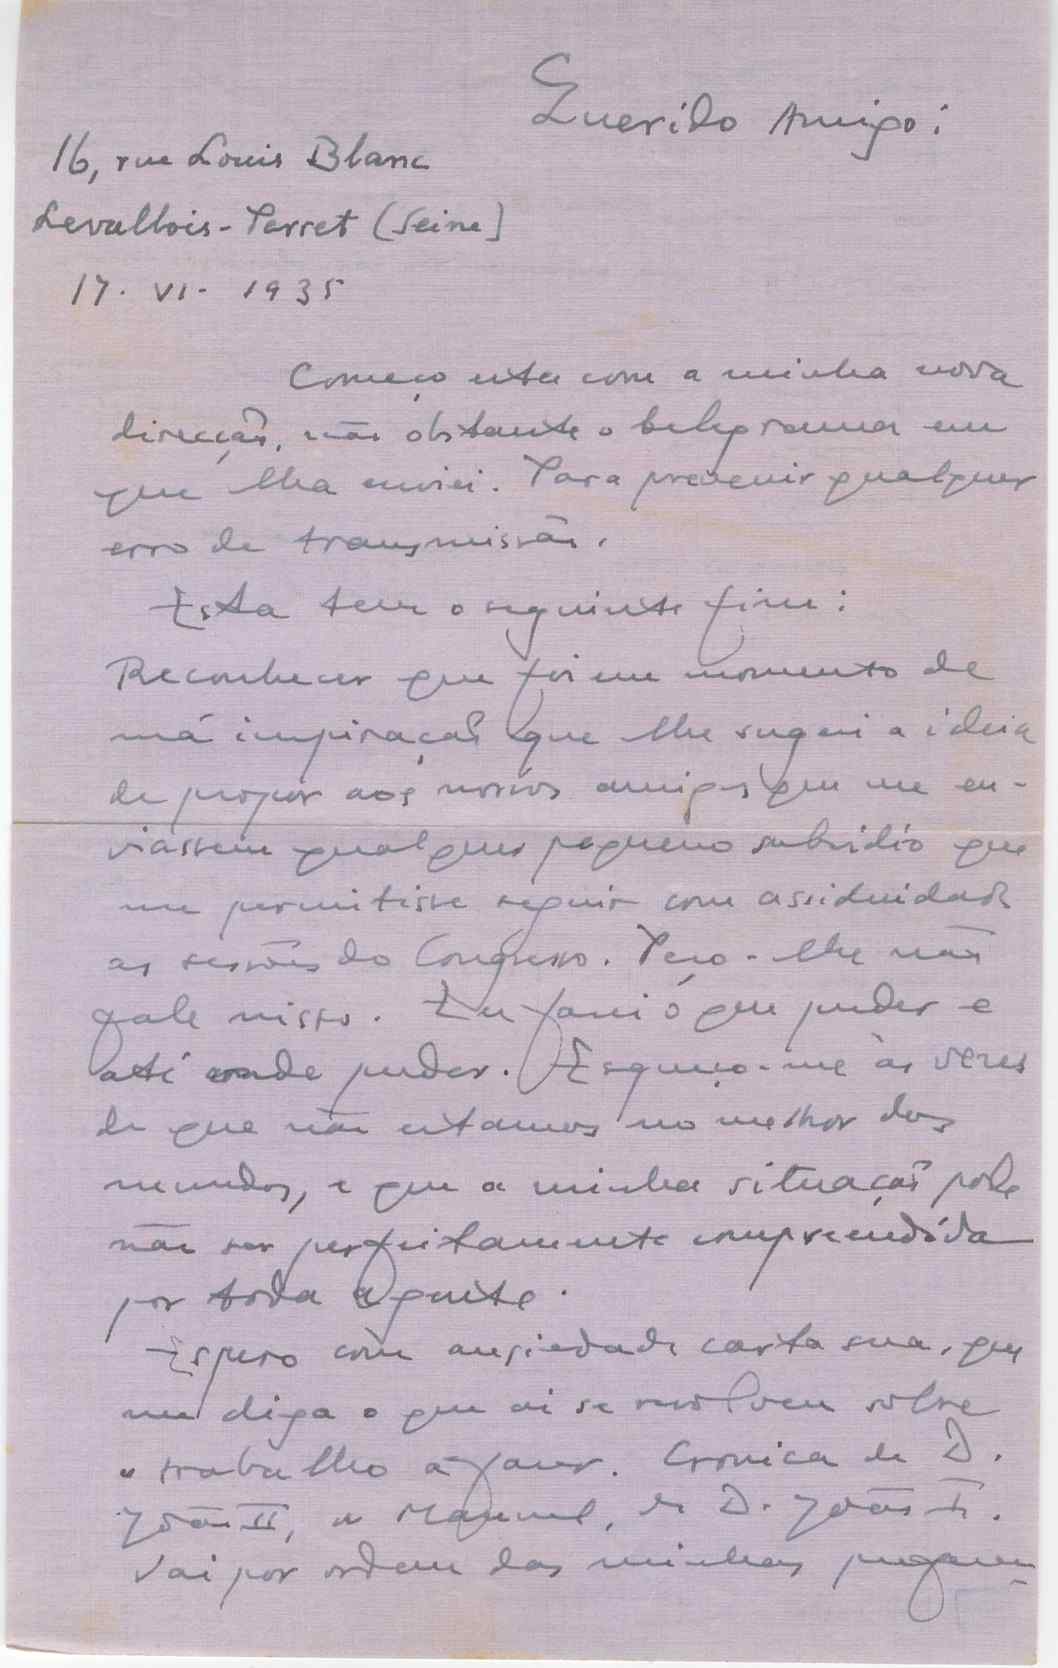 Querido Amigo:
16, rue Louis Blanc
Levallois-Perret (Seine)
17. VI. 1935
Começo esta com a minha nova
direcção, não obstante o telegrama em
que lha enviei. Para prevenir qualquer
erro de transmissão.
Esta tem o seguinte fim:
Reconhecer que foi em momento de
má inspiração que lhe sugeri a ideia
de propôr aos nossos amigos que me en-
viassem qualquer pequeno subsidio que
me permitisse seguir com assiduidade
as sessões do Congresso. Peço-lhe não
fale nisso. Eu farei o que puder e
até onde puder. Esqueço-me às vezes
de que não estamos no melhor dos
mundos, e que a minha situação pode
não ser perfeitamente compreendida
por toda a gente.
Espero com ansiedade carta sua, que
me diga o que aí se resolveu sobre
o trabalho a fazer. Cronica de D.
João II, ou Manuel, ou D. João I.
Vai por ordem das minhas